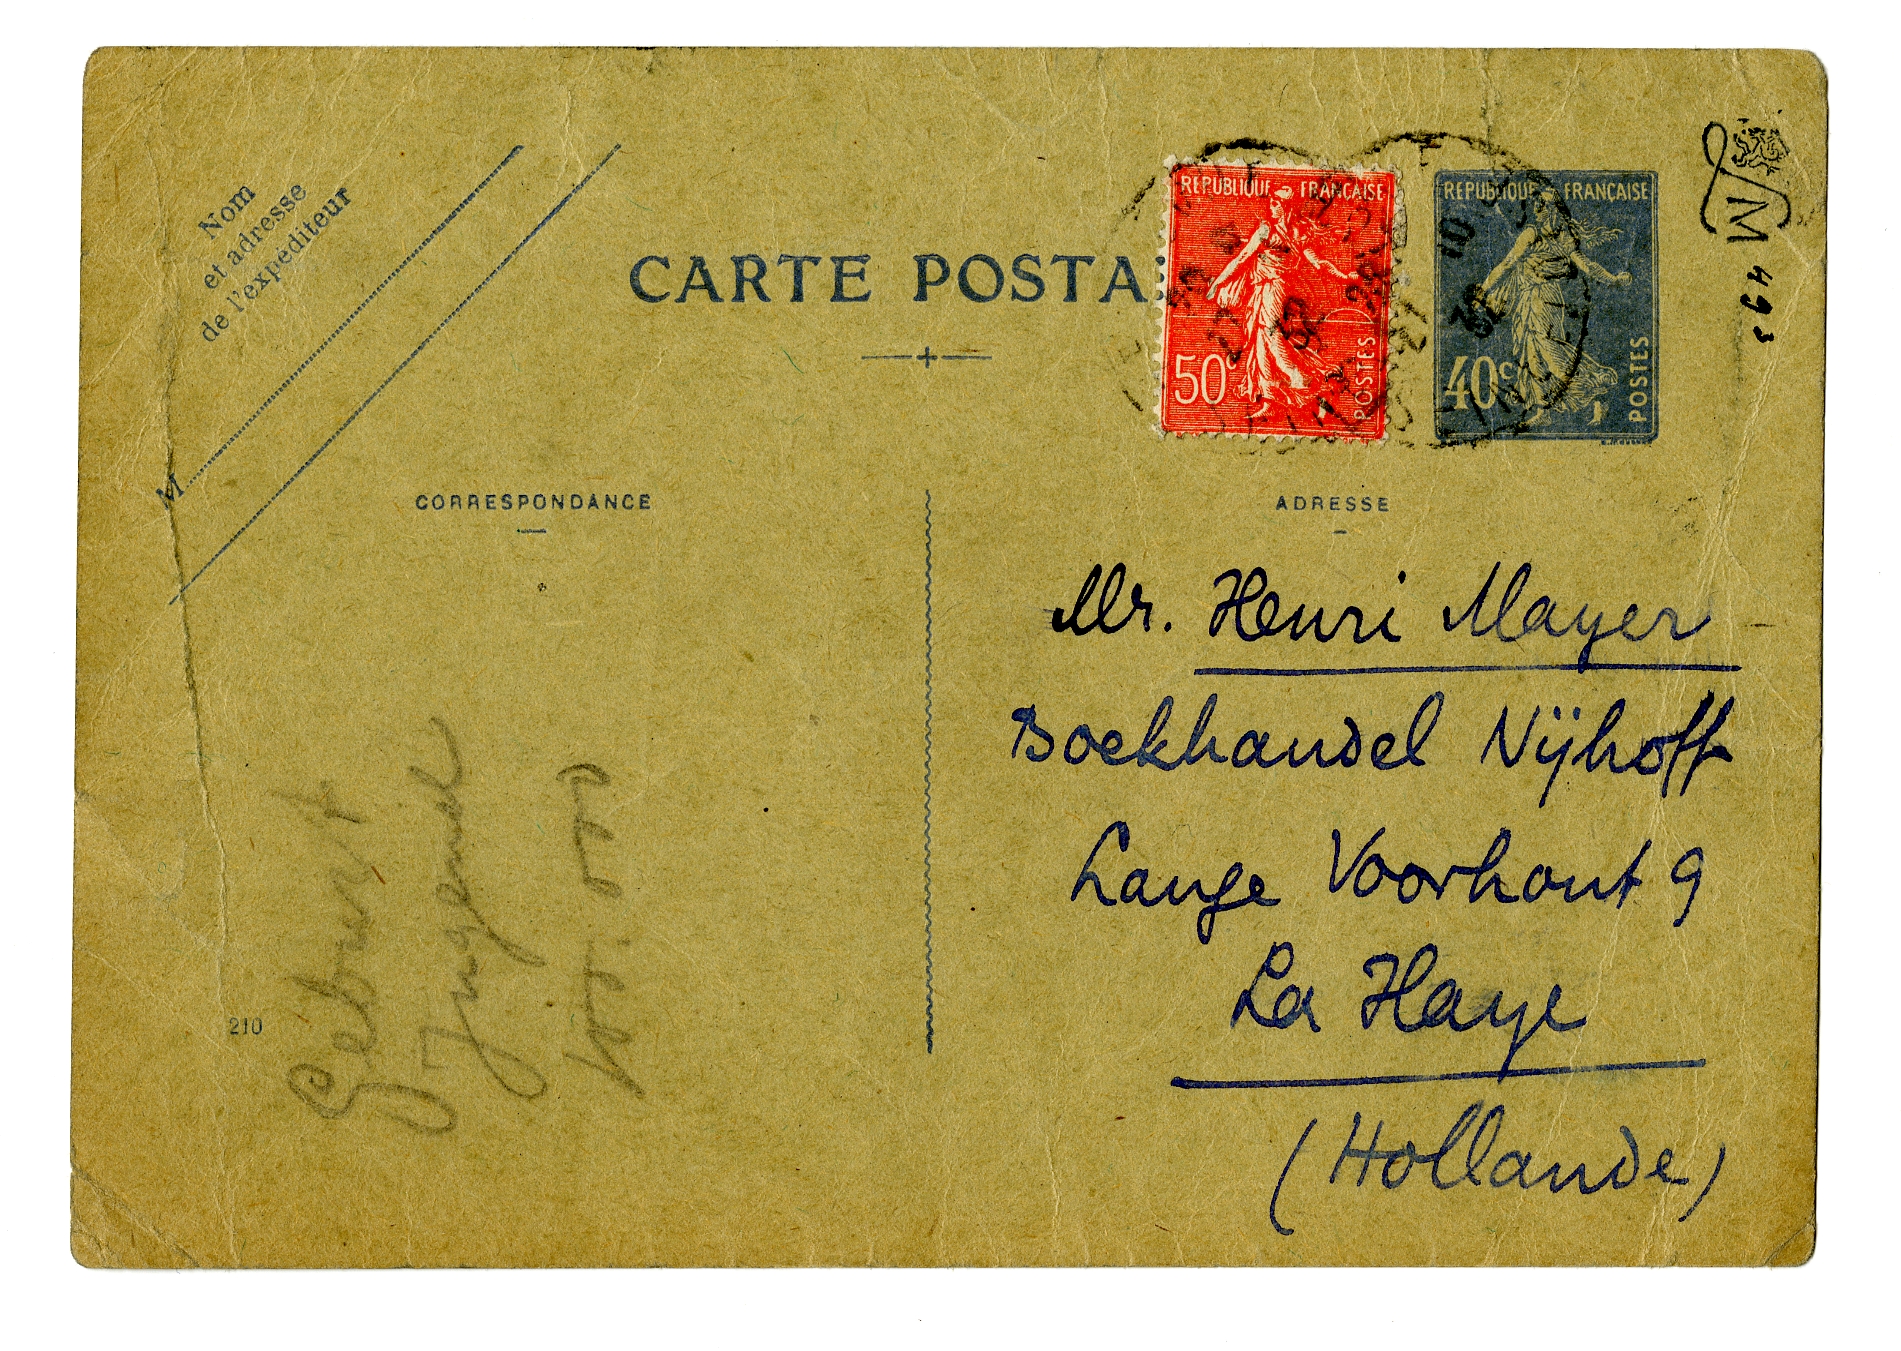 Nom
et adresse
de l'expéditeur
M
CARTE POSTA
RÉPUBLIQUE FRANÇAISE
50c
POSTES
RÉPUBLIQUE FRANÇAISE
40c
POSTES
32
32
M 493
CORRESPONDANCE
ADRESSE
Mr. Henri Mayer
Boekhandel Nijhoff
Lange Voorhout 9
La Haye
(Hollande)
Geburt
Jugend
210